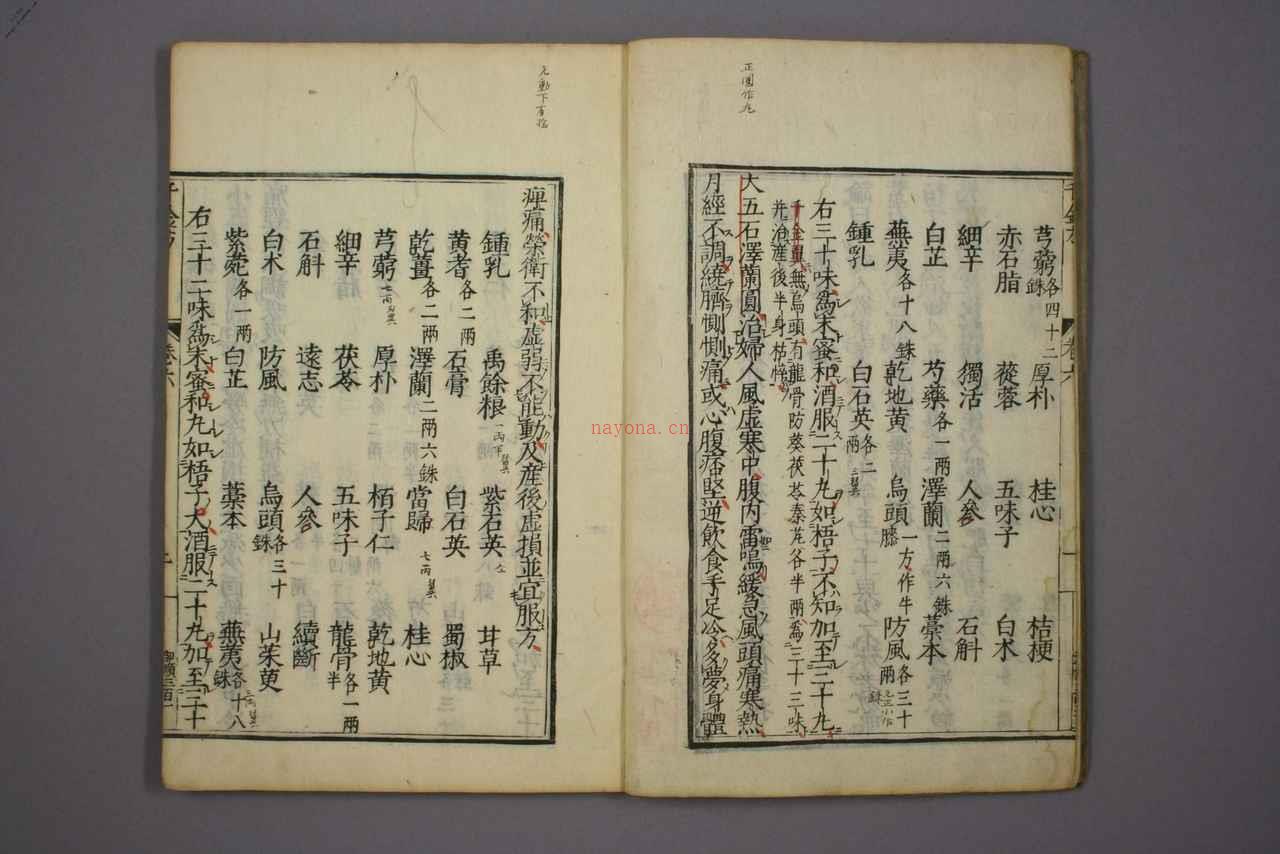 正圓作九
芎藭各四十二銖 厚朴 桂心 桔梗
赤石脂 蓯蓉 五味子 白朮
細辛 獨活 人參 石斛
白芷 芍藥各一兩 澤蘭二兩六銖 藁本
蕪荑各十八銖 乾地黃 烏頭一方作牛膝 防風各三十銖
鍾乳 白石英各二兩
右三十味爲末蜜和酒服二十丸如梧子不知加至三十丸
千金翼無烏頭有龍骨防葵茯苓秦芃各半兩爲三十三味
并治產後半身枯悴
大五石澤蘭圓治婦人風虛寒中腹內雷鳴緩急風頭痛寒熱
月經不調繞臍惻惻痛或心腹痞堅逆飲食手足冷多夢身體
痺痛榮衛不和虛弱不能動及產後虛損並宜服方
鍾乳 禹餘粮 紫石英 甘草
黃耆各二兩 石膏 白石英 蜀椒
乾薑各二兩 澤蘭二兩六銖 當歸 桂心
芎藭 厚朴 栢子仁 乾地黃
細辛 茯苓 五味子 龍骨各一兩半
石斛 遠志 人參 續斷
白朮 防風 烏頭各三十銖 山茱萸
紫菀各一兩 白芷 藁本 蕪荑各十八銖
右三十二味爲末蜜和丸如梧子大酒服二十丸加至三十
千金方 卷六
nayona.cn